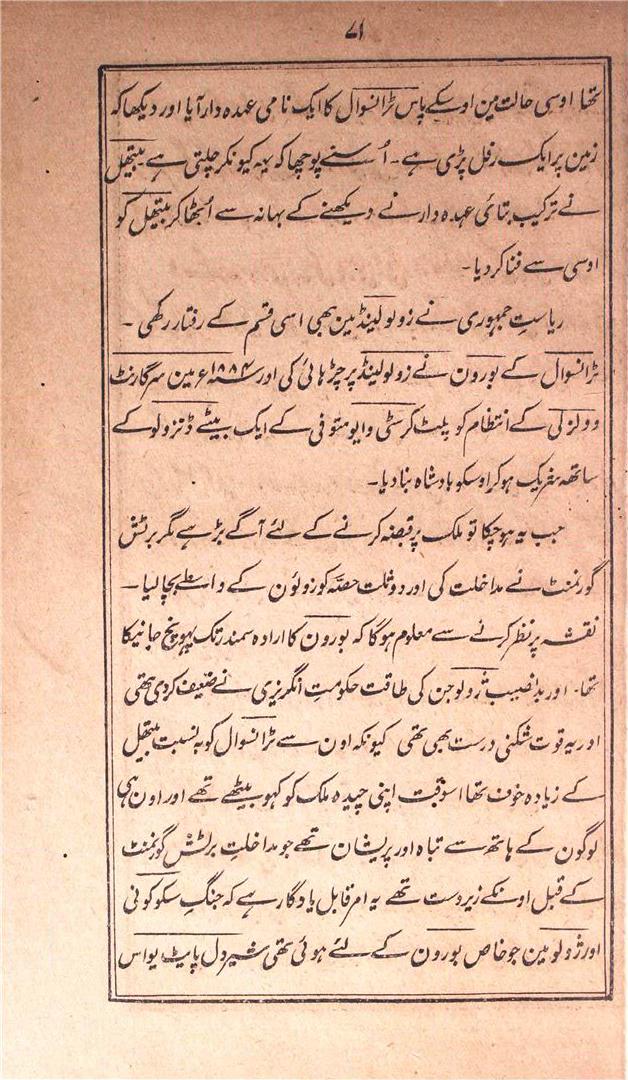 ۷۱
تھا اوسی حالت مین اوسکے پاس ٹرانسوال کا ایک نامی عہدہ دار آیا اور دیکھا کہ
زمین پر ایک رفل پڑی ہے۔ اُسنے پوچھا کہ یہہ کیونکر چلتی ہے میتھیل
نے ترکیب بتائی عہدہ دار نے دیکھنے کے بہانہ سے اُٹھا کر میتھیل کو
اوسی سے فنا کر دیا۔
ریاستِ جمہوری نے زولولینڈ مین بھی اسی قسم کے رفتار رکھی ۔
ٹرانسوال کے بورون نے زولولینڈ پر چڑہائی کی اور ۱۸۸۴ء مین سرگارنٹ
وولزلی کے انتظام کو پلٹ کر سٹی وایو متوفی کے ایک بیٹے ڈنزولو کے
ساتھ شریک ہو کر اوسکو بادشاہ بنا دیا۔
جب یہ ہو چکا تو ملک پر قبضہ کرنے کے لئے آگے بڑہے مگر برٹش
گورنمنٹ نے مداخلت کی اور دو ثلث حصّہ کو زولون کے واسطے بچا لیا ۔
نقشہ پر نظر کرنے سے معلوم ہوگا کہ بورون کا ارادہ سمندر تک پہونچ جانیکا
تھا۔ اور بد نصیب زولو جن کی طاقت حکومتِ انگریزی نے ضعیف کر دی تھی
اور یہ قوت شکنی درست بھی تھی کیونکہ اون سے ٹرانسوال کو بہ نسبت میتھیل
کے زیادہ خوف تھا اسوقت اپنی چیدہ ملک کو کہو بیٹھے تھے اور اون ہی
لوگون کے ہاتھ سے تباہ اور پریشان تھے جو مداخلتِ برٹش گورنمنٹ
کے قبل اونکے زیردست تھے یہ امر قابل یادگار ہے کہ جنگِ سکوکونی
اور زولو مین جو خاص بورون کے لئے ہوئی تھی شیردل پایٹ یواس